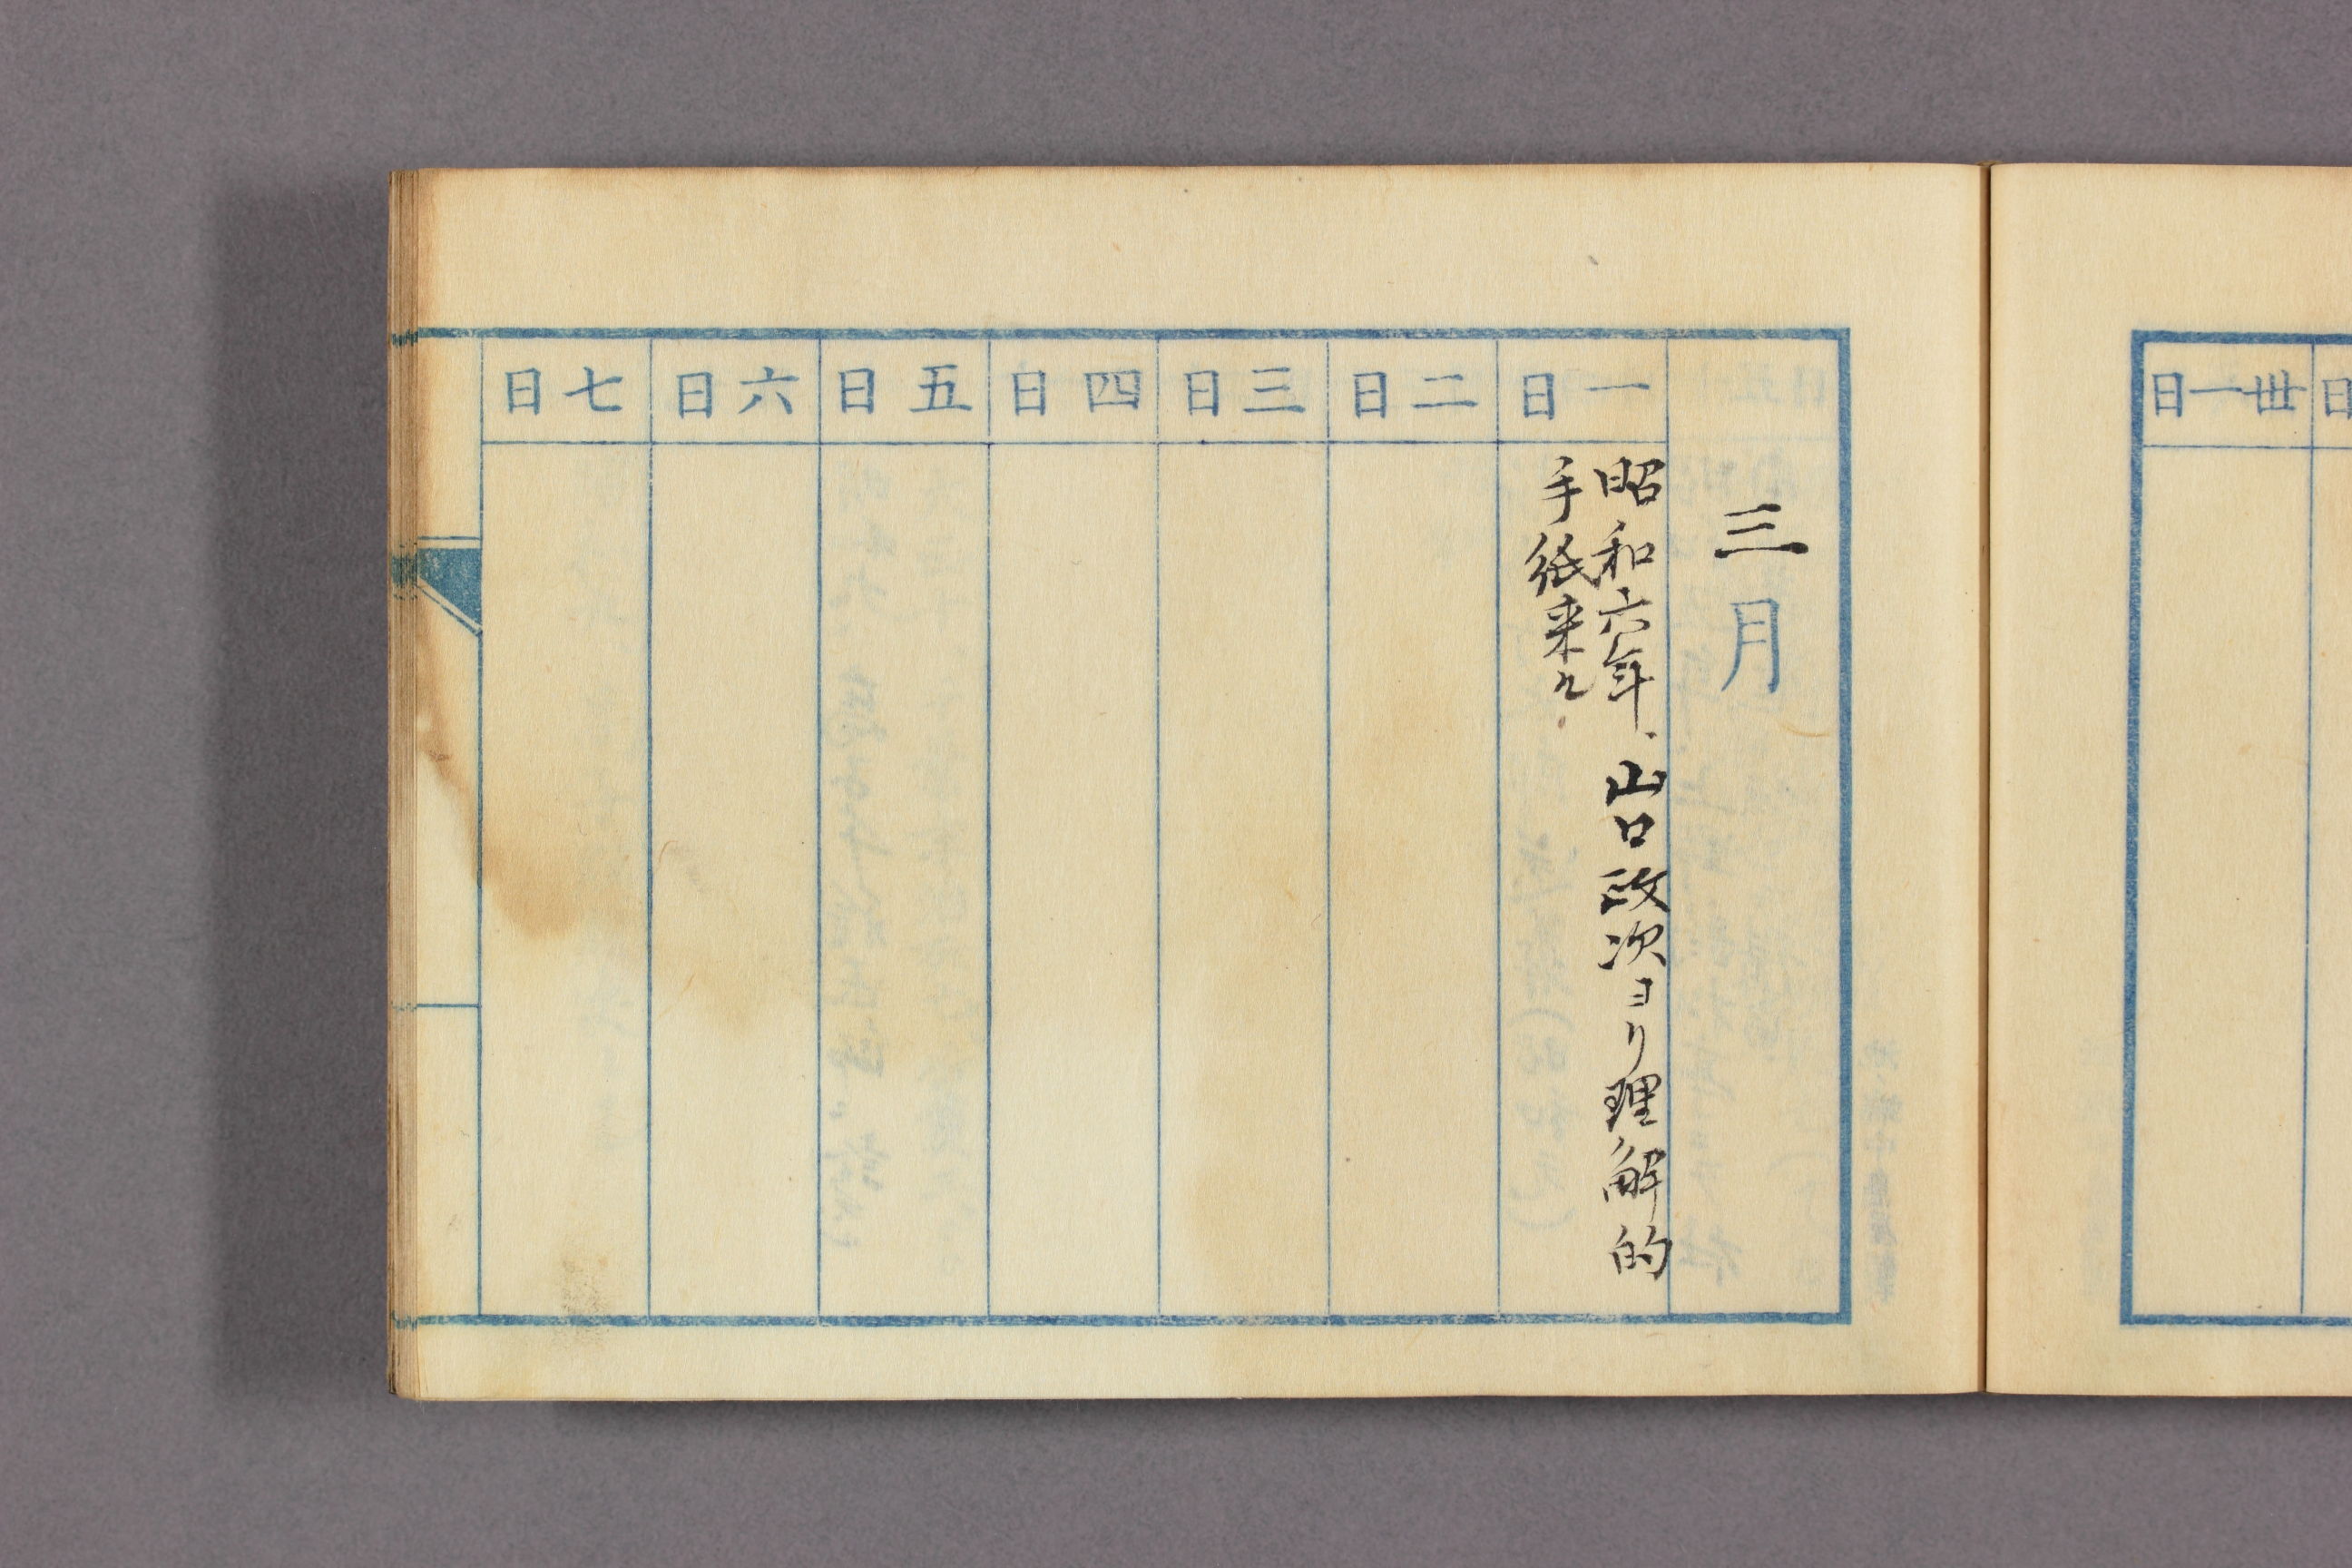 丗一日
日
三月
一日
昭和六年、山口政次ヨリ理解的
手紙来ル.
二日
三日
四日
五日
六日
七日